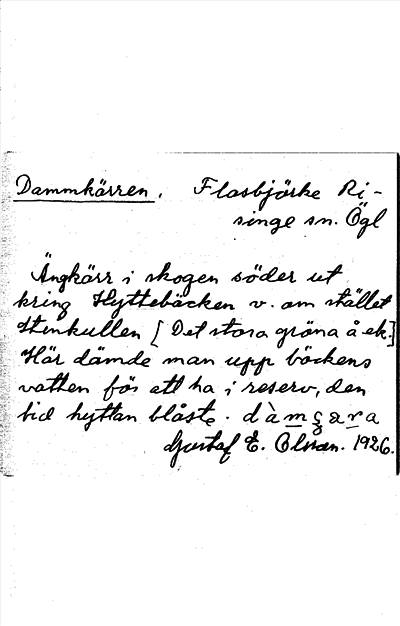 Dammkärren. Flasbjörke Ri-
singe sn. Ögl
Ängkärr i skogen söder ut
kring Hyttebäcken v. om stället
Stenkullen [Det stora gröna å ek.]
Här dämde man upp bäckens
vatten för att ha i reserv, den
tid hyttan blåste. dàmçara
Gustaf E. Olsson. 1926.